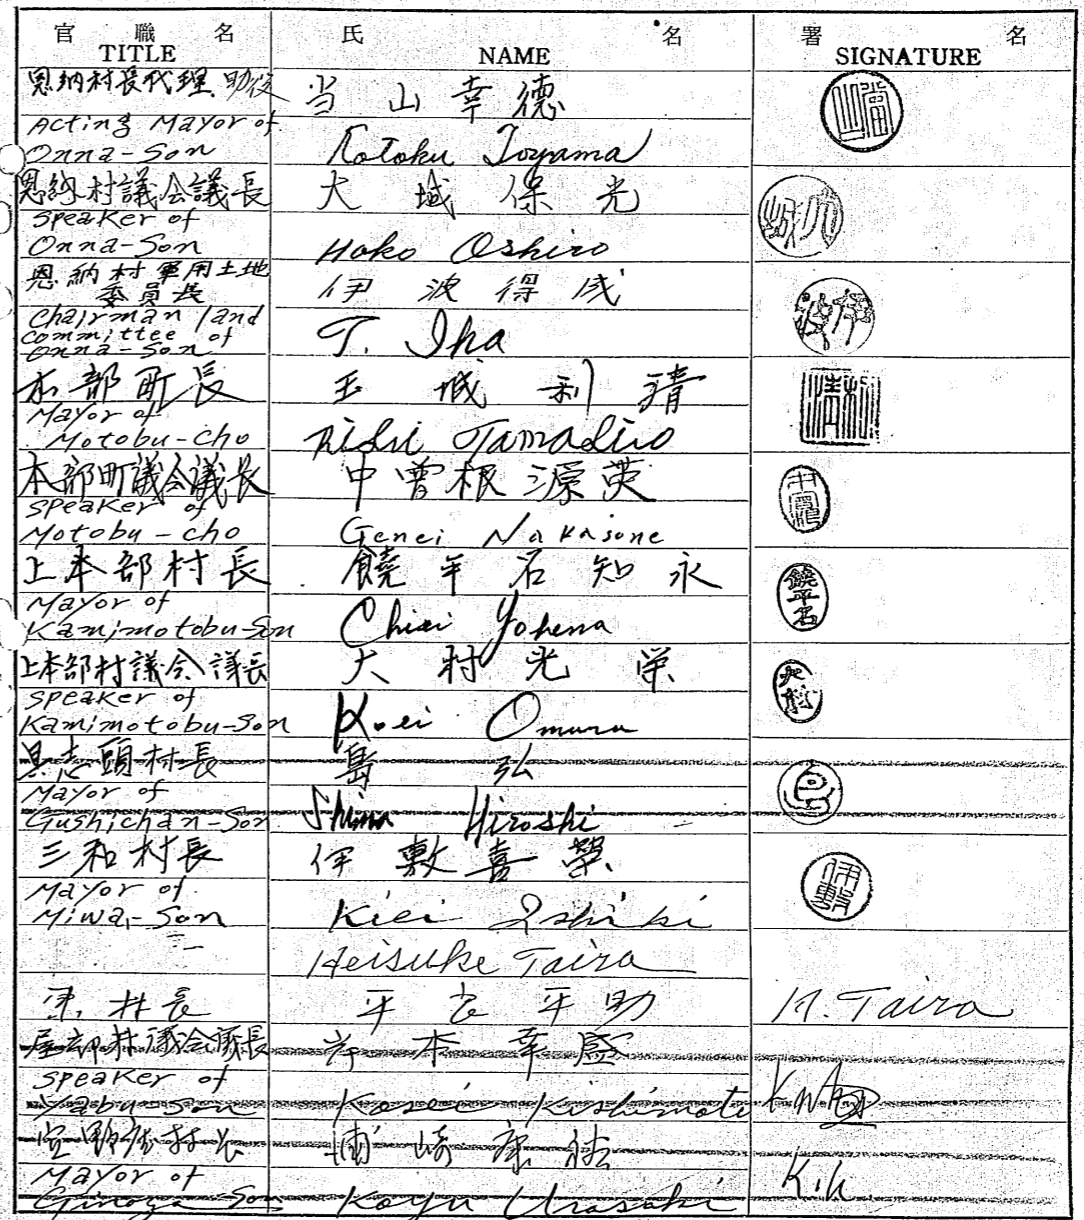 官職名 氏名 署名
TITLE NAME SIGNATURE
恩納村長代理 助役 当山幸徳
Acting Mayor of
Onna-Son Kotoku Toyama
恩納村議会議長 大城保光
Speaker of
Onna-Son Hoko Oshiro
恩納村軍用土地
委員長 伊波得成
Chairman land
committee of
Onna-Son T. Iha
本部町長 玉城利清
Mayor of
Motobu-cho Tamashiro
本部町議会議長 中曽根源英
Speaker of
Motobu-cho Genei Nakasone
上本部村長 饒平名知永
Mayor of
Kamimotobu-Son Chiei Yohena
上本部村議会議長 大村光栄
Speaker of
Kamimotobu-Son Koei Omura
具志頭村長 島弘
Mayor of
Gushichan-Son Shima Hiroshi
三和村長 伊敷喜栄
Mayor of
Miwa-Son Kiei Ishiki
Heisuke Taira
村長 平良平助 H. Taira
屋部村議会議長 岸本幸盛
Speaker of
Yabu-Son Kosei Kishimoto
宜野座村長 浦崎康
Mayor of K.U.
Ginoza-Son Koyu Urasaki